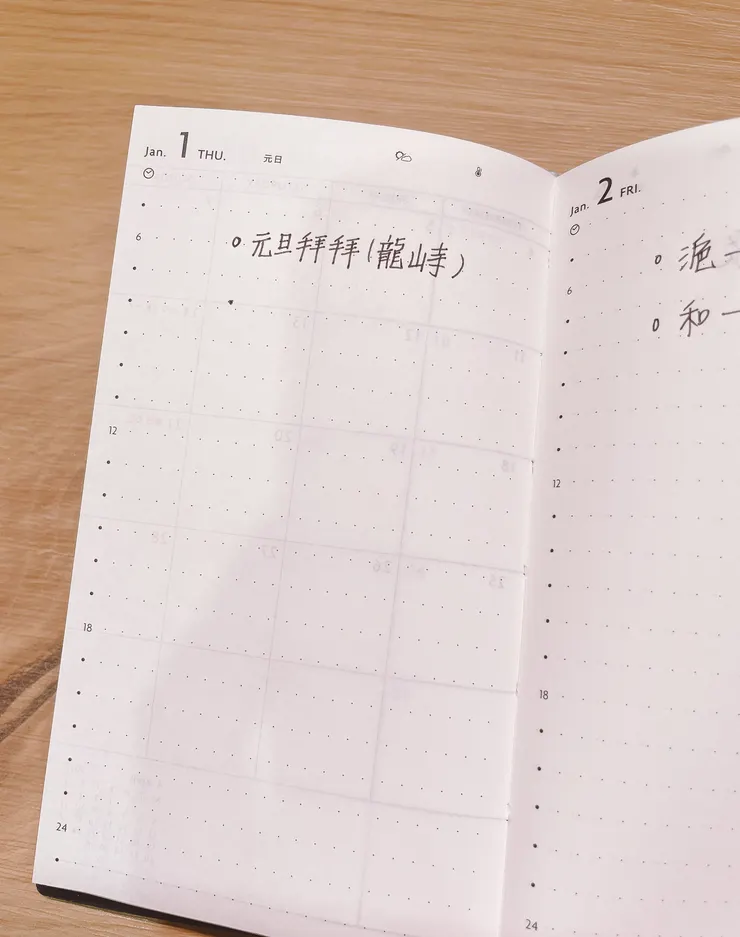 Jan. 1 THU. 元日
6
元旦拜拜(龍山寺)
12
18
24
Jan. 2 FRI.
6
和一
12
18
24